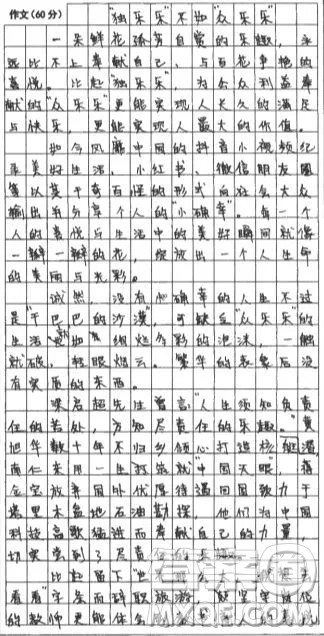 作文(60分)
"独乐乐"不如"众乐乐"
一朵鲜花孤芳自赏的乐趣,永
远比不上奉献自己、与百花争艳的
喜悦。比起"独乐乐",为公众利益奉
献的"众乐乐"更能实现人长久的满足
与快乐,更能实现人最大的价值。
如今风靡中国的抖音小视频纪
录美好生活,小红书、微信朋友圈
等以莫千奇百怪的形式向社会大众
输出与分享个人的"小确幸"。每一个
人的喜悦与生活中的美好瞬间就像
一瓣一瓣的花,绽放出一个人生命
的美丽与光彩。
诚然,没有小确幸的人生不过
是"干巴巴的沙漠",可缺乏"众乐乐"的
生活也如绚烂多彩的泡沫,一触
就破,轻眼烟云。繁华的表象后没
有实质的东西。
梁启超先生曾言:"人生须知负责
任的苦处,方知尽责任的乐趣。"黄
旭华数十年不归乡倾心打造核潜艇,
南仁东用一生打造就"中国天眼",
放弃国外优厚待遇回国致力于
塔里木盆地石油勘探,他们为中国
科技高歌猛进而奉献自己的力量,
切实尝到了尽责
比起留下
看看"字条而辞职旅游,
的教师更能体会